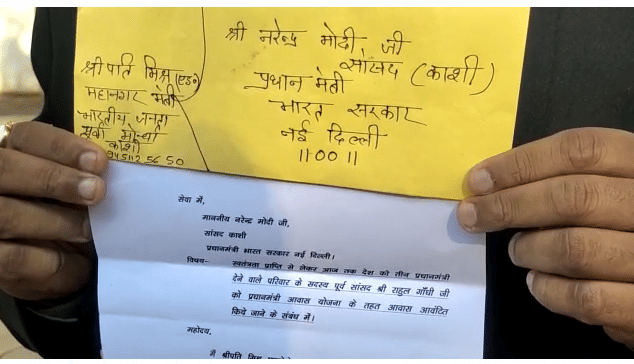 श्री नरेन्द्र मोदी जी
सांसद (काशी)
प्रधान मंत्री
भारत सरकार
नई दिल्ली
110011
श्रीपति मिश्र (एड०)
महानगर मंत्री
भारतीय जनता
युवा मोर्चा
काशी
सेवा में,
माननीय नरेन्द्र मोदी जी,
सांसद काशी
प्रधानमंत्री भारत सरकार नई दिल्ली।
विषय:- स्वतंत्रता प्राप्ति से लेकर आज तक देश को तीन प्रधानमंत्री
देने वाले परिवार के सदस्य पूर्व सांसद श्री राहुल गाँधी जी
को प्रधानमंत्री आवास योजना के तहत आवास आवंटित
किये जाने के संबंध में।
महोदय,
मैं श्रीपति मिश्र